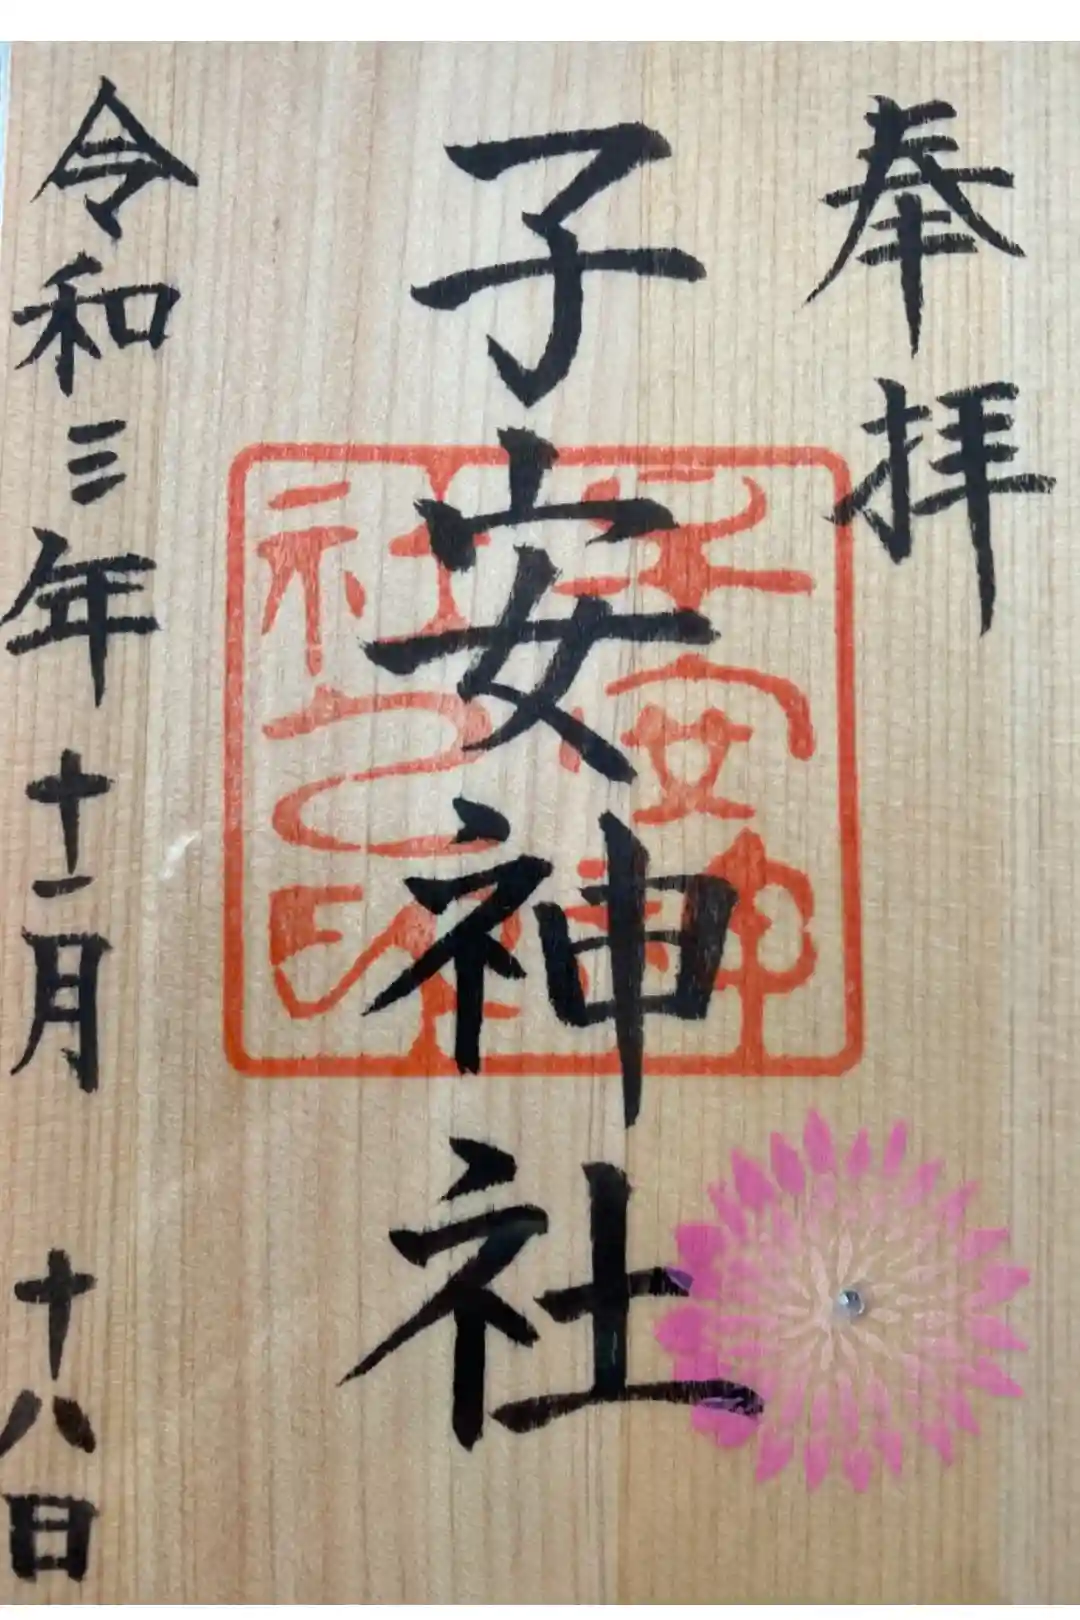 奉拝
子安神社
子安神
社之印
令和三年十一月十八日